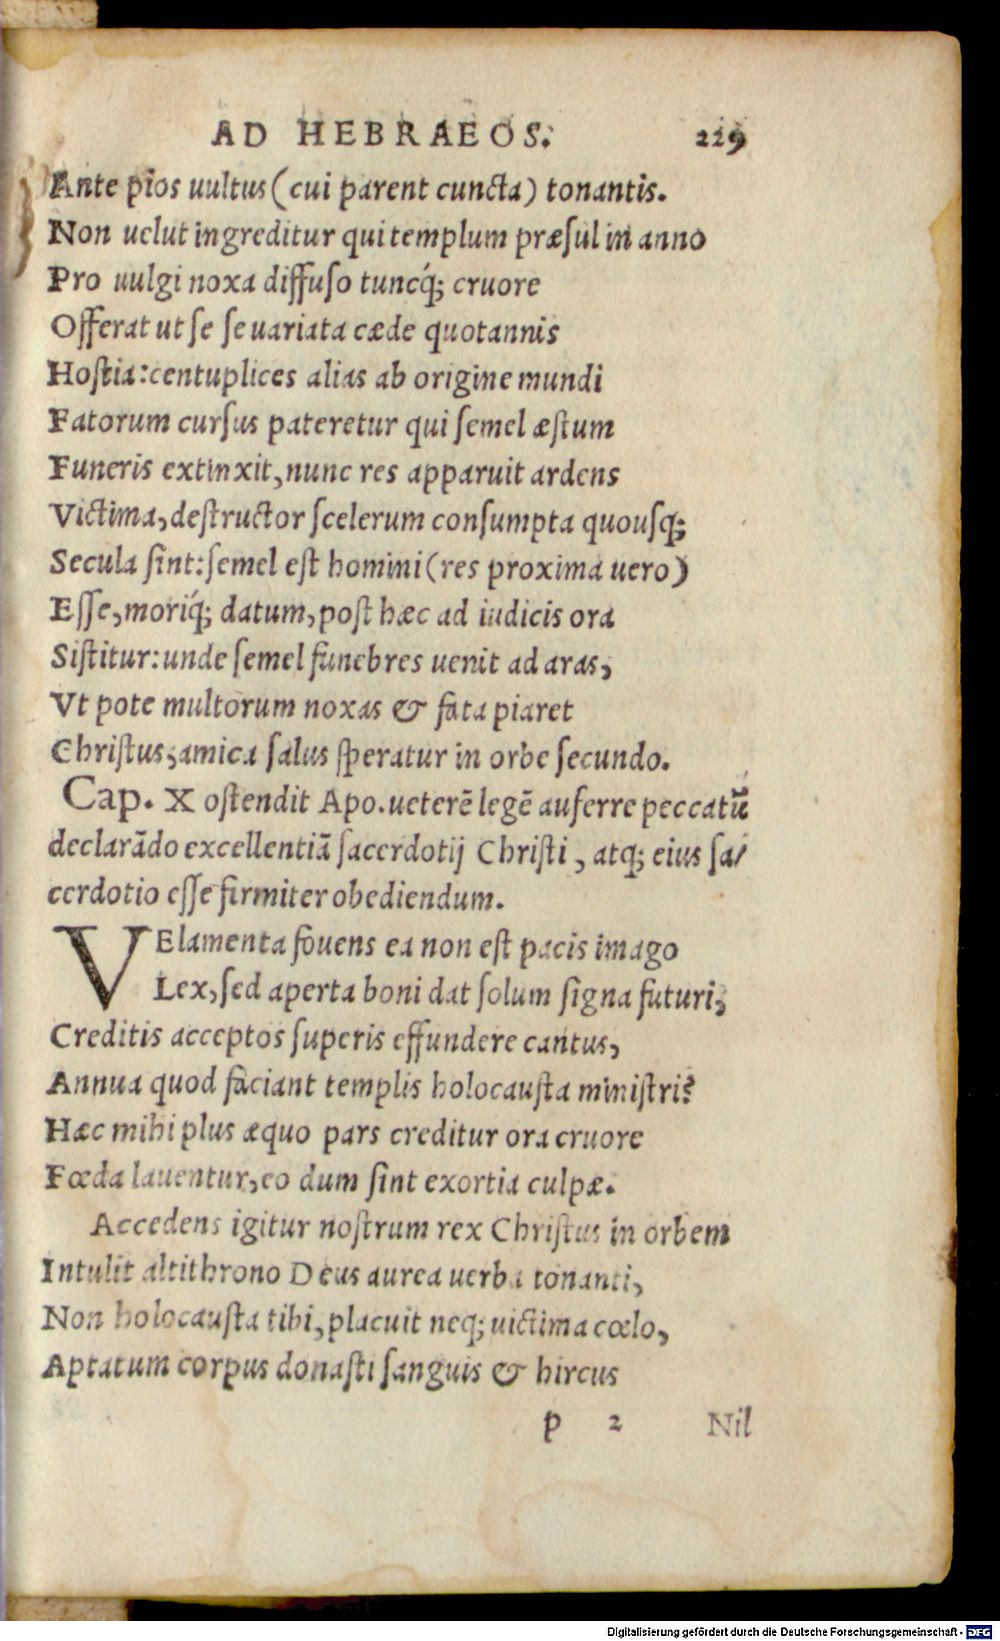 AD HEBRAEOS. 229
Ante pios uultus (cui parent cuncta) tonantis.
Non uelut ingreditur qui templum præſul in anno
Pro uulgi noxa diffuſo tuncq́; cruore
Offerat ut ſe ſe uariata cæde quotannis
Hoſtia: centuplices alias ab origine mundi
Fatorum curſus pateretur qui ſemel æſtum
Funeris extinxit, nunc res apparuit ardens
Victima, deſtructor ſcelerum conſumpta quouſq;
Secula ſint: ſemel eſt homini (res proxima uero)
Eſſe, moriq́; datum, poſt hæc ad iudicis ora
Siſtitur: unde ſemel funebres uenit ad aras,
Vt pote multorum noxas & fata piaret
Chriſtus, amica ſalus ſperatur in orbe ſecundo.
Cap. X oſtendit Apo. ueterē legē auferre peccatū
declarādo excellentiā ſacerdotij Chriſti, atq; eius ſa/
cerdotio eſſe firmiter obediendum.
VElamenta fouens ea non eſt pacis imago
Lex, ſed aperta boni dat ſolum ſigna futuri,
Creditis acceptos ſuperis effundere cantus,
Annua quod faciant templis holocauſta miniſtri?
Hæc mihi plus æquo pars creditur ora cruore
Fœda lauentur, eo dum ſint exortia culpæ.
Accedens igitur noſtrum rex Chriſtus in orbem
Intulit altithrono Deus aurea uerba tonanti,
Non holocauſta tibi, placuit neq; uictima cœlo,
Aptatum corpus donaſti ſanguis & hircus
p 2 Nil
Digitalisierung gefördert durch die Deutsche Forschungsgemeinschaft - DFG